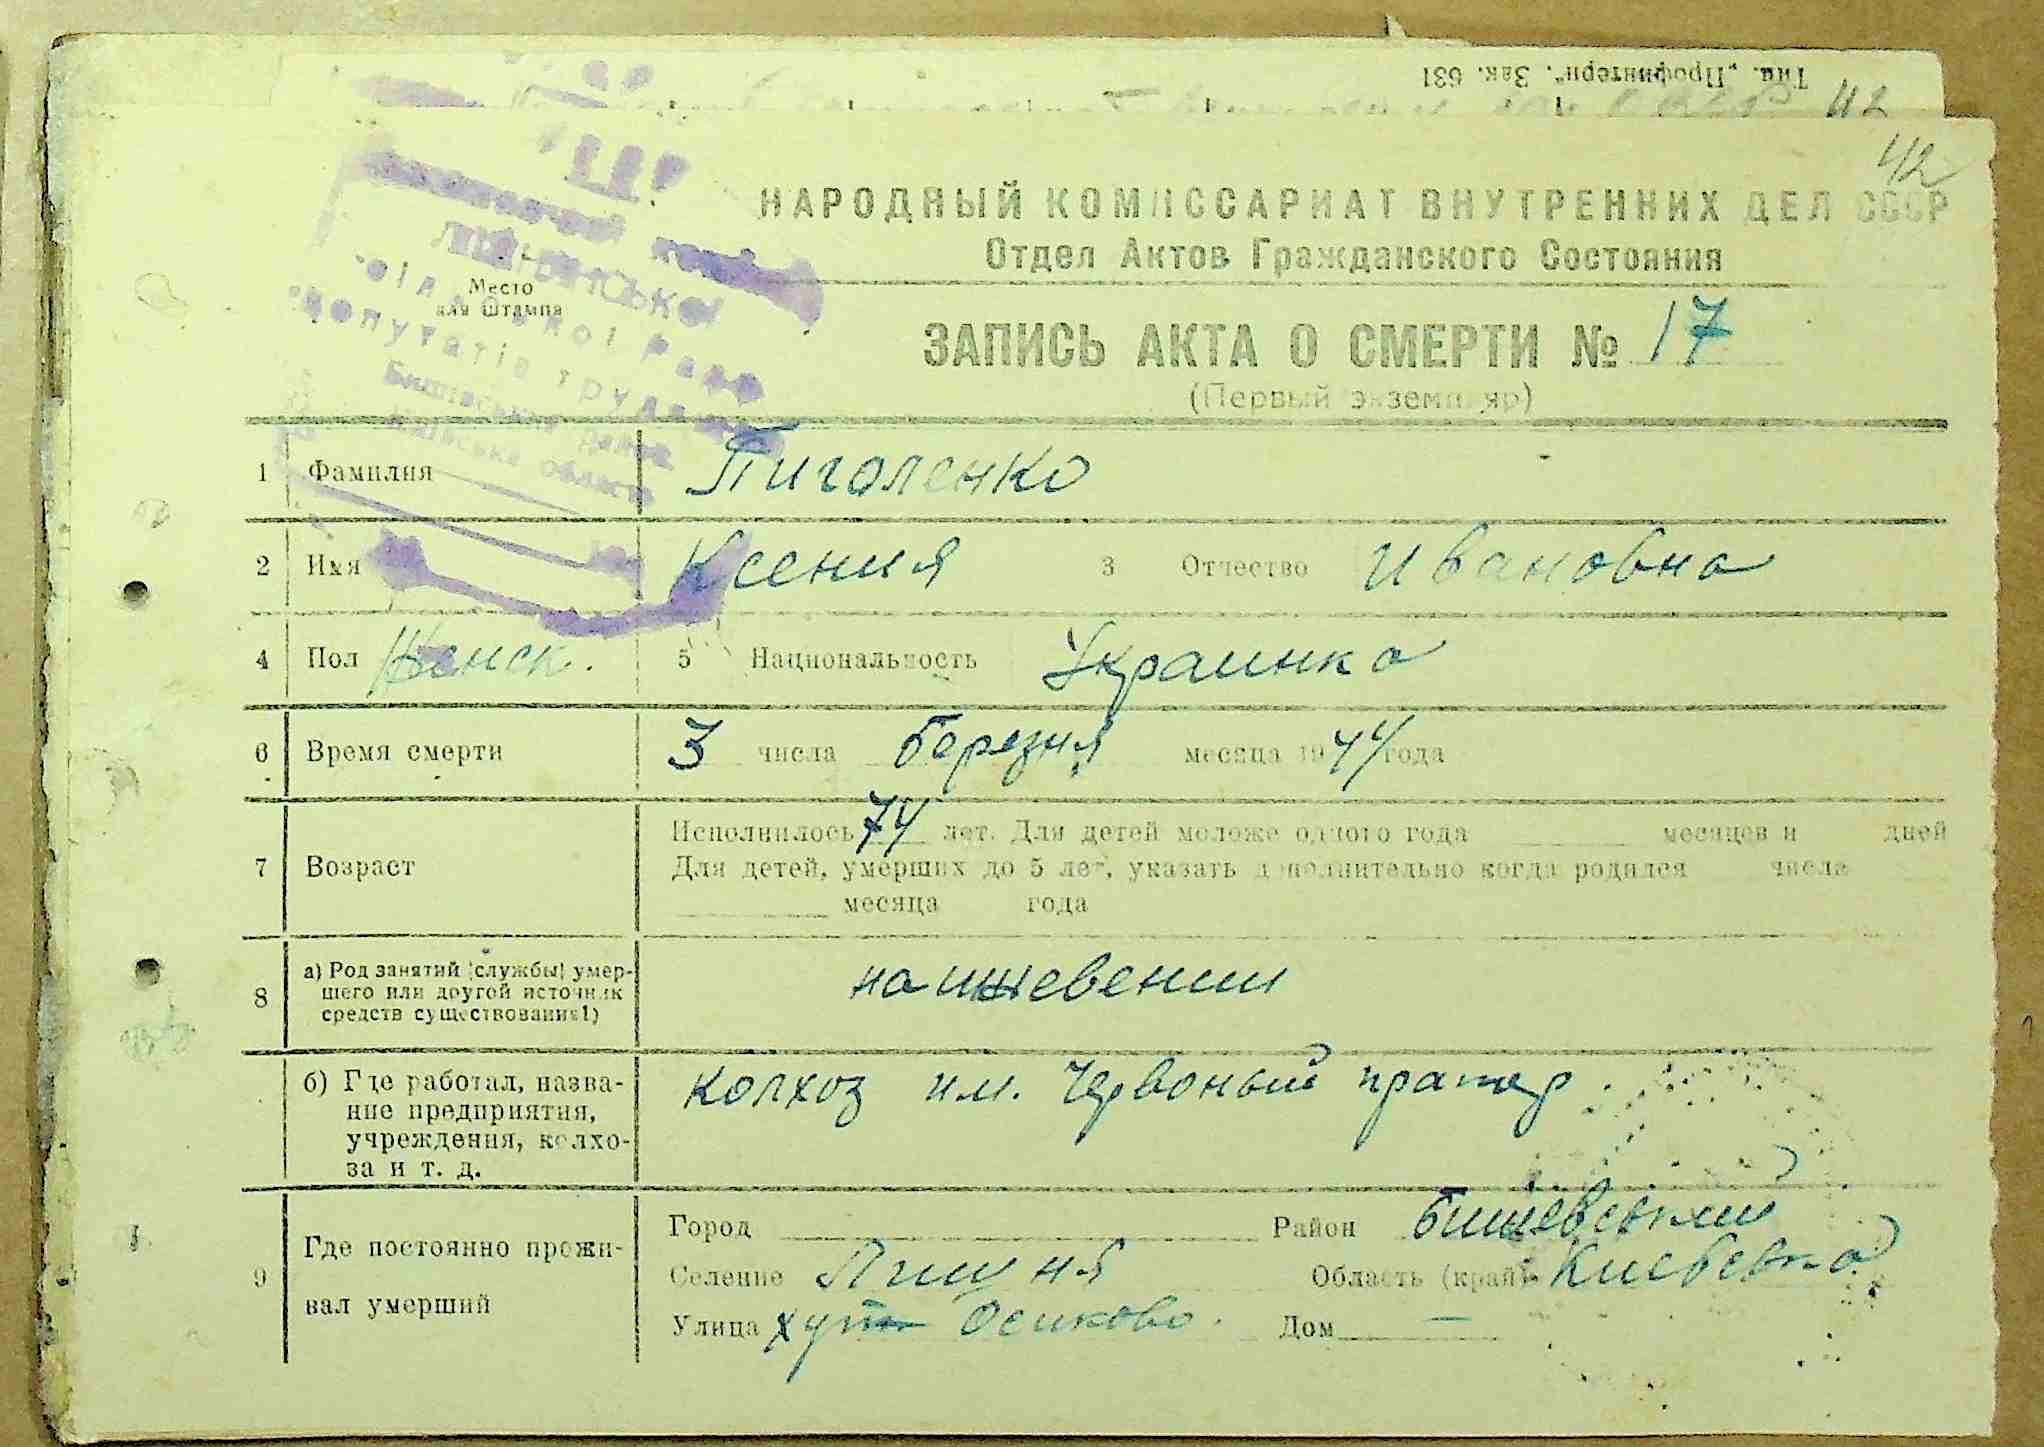 Тип. „Профинтерн“. Зак. 631
42
42
НАРОДНЫЙ КОМИССАРИАТ ВНУТРЕННИХ ДЕЛ СССР
Отдел Актов Гражданского Состояния
Место
для штампа
депутатів трудящ
Бишівський район
Київська область
ЗАПИСЬ АКТА О СМЕРТИ № 17
(Первый экземпляр)
1 Фамилия Пиголенко
2 Имя Ксения 3 Отчество Ивановна
4 Пол Женск. 5 Национальность Украинка
6 Время смерти 3 числа березня месяца 1944 года
7 Возраст
Исполнилось 74 лет. Для детей моложе одного года месяцев и дней
Для детей, умерших до 5 лет, указать дополнительно когда родился числа
месяца года
8 а) Род занятий (службы) умер-
шего или другой источник
средств существования1)
на ижевении
б) Где работал, назва-
ние предприятия,
учреждения, колхо-
за и т. д.
колхоз им. Червоный пратор
9 Где постоянно прожи-
вал умерший
Город Район Бишевський
Селение Лишня Область (край) Киевська
Улица хут Осиково. Дом —